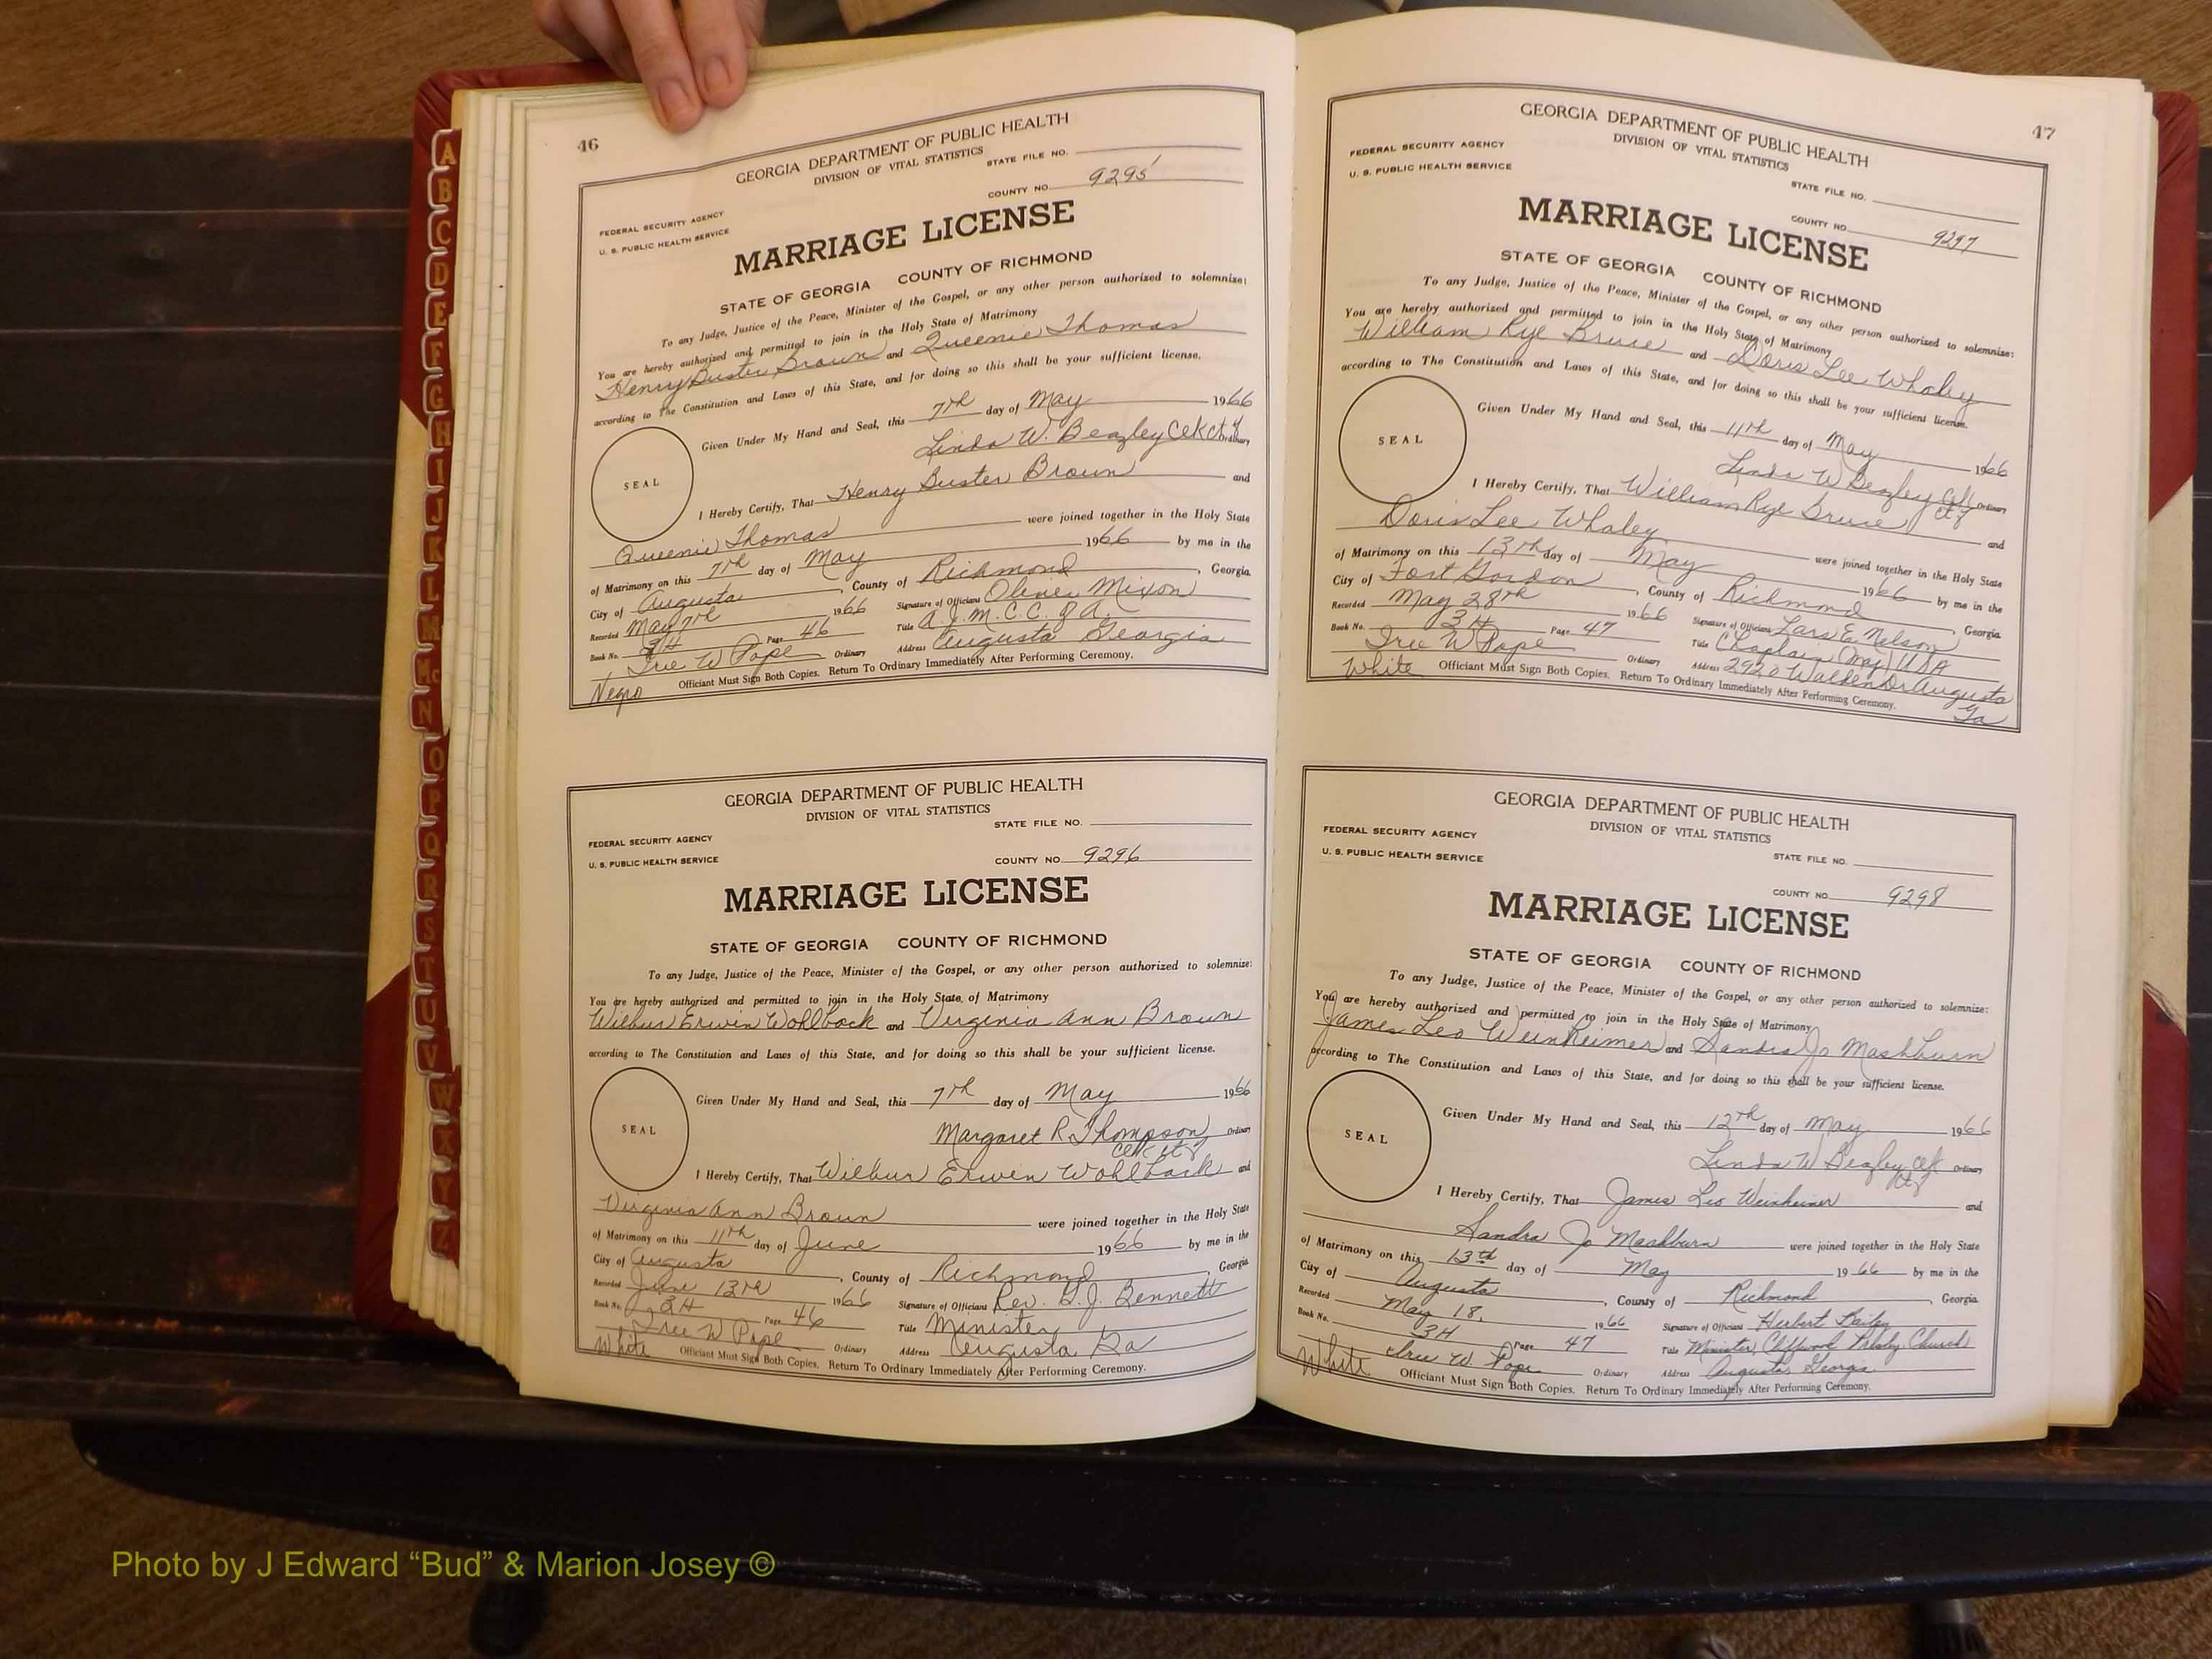 A
B
C
D
E
F
G
H
I
J
K
L
M
Mc
N
O
P
Q
R
S
T
U
V
W
X
Y
Z
46
GEORGIA DEPARTMENT OF PUBLIC HEALTH
DIVISION OF VITAL STATISTICS STATE FILE NO.
COUNTY NO. 9295
FEDERAL SECURITY AGENCY
U. S. PUBLIC HEALTH SERVICE
MARRIAGE LICENSE
STATE OF GEORGIA COUNTY OF RICHMOND
To any Judge, Justice of the Peace, Minister of the Gospel, or any other person authorized to solemnize:
You are hereby authorized and permitted to join in the Holy State of Matrimony
Henry Buster Brown and Queenie Thomas
according to The Constitution and Laws of this State, and for doing so this shall be your sufficient license.
Given Under My Hand and Seal, this 7th day of May 1966
Linda W. Beazley Clk Ct Ordinary
SEAL
I Hereby Certify, That Henry Buster Brown and
Queenie Thomas were joined together in the Holy State
of Matrimony on this 7th day of May 1966 by me in the
City of Augusta, County of Richmond, Georgia.
Recorded May 7th 1966 Signature of Officiant Oliver Mixon
Book No. 3H Page 46 Title A. J. M. C. C. of A.
Iree W Pope Ordinary Address Augusta Georgia
Negro Officiant Must Sign Both Copies. Return To Ordinary Immediately After Performing Ceremony.
GEORGIA DEPARTMENT OF PUBLIC HEALTH
DIVISION OF VITAL STATISTICS
STATE FILE NO.
FEDERAL SECURITY AGENCY
U. S. PUBLIC HEALTH SERVICE COUNTY NO. 9296
MARRIAGE LICENSE
STATE OF GEORGIA COUNTY OF RICHMOND
To any Judge, Justice of the Peace, Minister of the Gospel, or any other person authorized to solemnize:
You are hereby authorized and permitted to join in the Holy State of Matrimony
Wilbur Erwin Wohlback and Virginia Ann Brown
according to The Constitution and Laws of this State, and for doing so this shall be your sufficient license.
Given Under My Hand and Seal, this 7th day of May 1966
Margaret R Thompson Ordinary
Clk Ct
SEAL
I Hereby Certify, That Wilbur Erwin Wohlback and
Virginia Ann Brown were joined together in the Holy State
of Matrimony on this 11th day of June 1966 by me in the
City of Augusta, County of Richmond, Georgia.
Recorded June 13th 1966 Signature of Officiant Rev. G. J. Bennett
Book No. 3H Page 46 Title Minister
Iree W Pope Ordinary Address Augusta Ga
White Officiant Must Sign Both Copies. Return To Ordinary Immediately After Performing Ceremony.
47
GEORGIA DEPARTMENT OF PUBLIC HEALTH
DIVISION OF VITAL STATISTICS
FEDERAL SECURITY AGENCY
U. S. PUBLIC HEALTH SERVICE
STATE FILE NO.
COUNTY NO. 9297
MARRIAGE LICENSE
STATE OF GEORGIA COUNTY OF RICHMOND
To any Judge, Justice of the Peace, Minister of the Gospel, or any other person authorized to solemnize:
You are hereby authorized and permitted to join in the Holy State of Matrimony
William Rye Bruce and Doris Lee Whaley
according to The Constitution and Laws of this State, and for doing so this shall be your sufficient license.
Given Under My Hand and Seal, this 11th day of May 1966
Linda W Beazley Clk Ct Ordinary
SEAL
I Hereby Certify, That William Rye Bruce and
Doris Lee Whaley were joined together in the Holy State
of Matrimony on this 13th day of May 1966 by me in the
City of Fort Gordon, County of Richmond, Georgia.
Recorded May 28th 1966 Signature of Officiant Lars E. Nelson
Book No. 3H Page 47 Title Chaplain (Maj) USA
Iree W Pope Ordinary Address 2920 Walden Dr Augusta
White Officiant Must Sign Both Copies. Return To Ordinary Immediately After Performing Ceremony. Ga
GEORGIA DEPARTMENT OF PUBLIC HEALTH
DIVISION OF VITAL STATISTICS
FEDERAL SECURITY AGENCY
U. S. PUBLIC HEALTH SERVICE
STATE FILE NO.
COUNTY NO. 9298
MARRIAGE LICENSE
STATE OF GEORGIA COUNTY OF RICHMOND
To any Judge, Justice of the Peace, Minister of the Gospel, or any other person authorized to solemnize:
You are hereby authorized and permitted to join in the Holy State of Matrimony
James Leo Weinheimer and Sandra Jo Mashburn
according to The Constitution and Laws of this State, and for doing so this shall be your sufficient license.
Given Under My Hand and Seal, this 12th day of May 1966
Linda W Beazley Clk Ct Ordinary
SEAL
I Hereby Certify, That James Leo Weinheimer and
Sandra Jo Mashburn were joined together in the Holy State
of Matrimony on this 13th day of May 1966 by me in the
City of Augusta, County of Richmond, Georgia.
Recorded May 18, 1966 Signature of Officiant Herbert Bailey
Book No. 3H Page 47 Title Minister, Cliffwood Presby. Church
Iree W. Pope Ordinary Address Augusta, Georgia
White Officiant Must Sign Both Copies. Return To Ordinary Immediately After Performing Ceremony.
Photo by J Edward “Bud” & Marion Josey ©